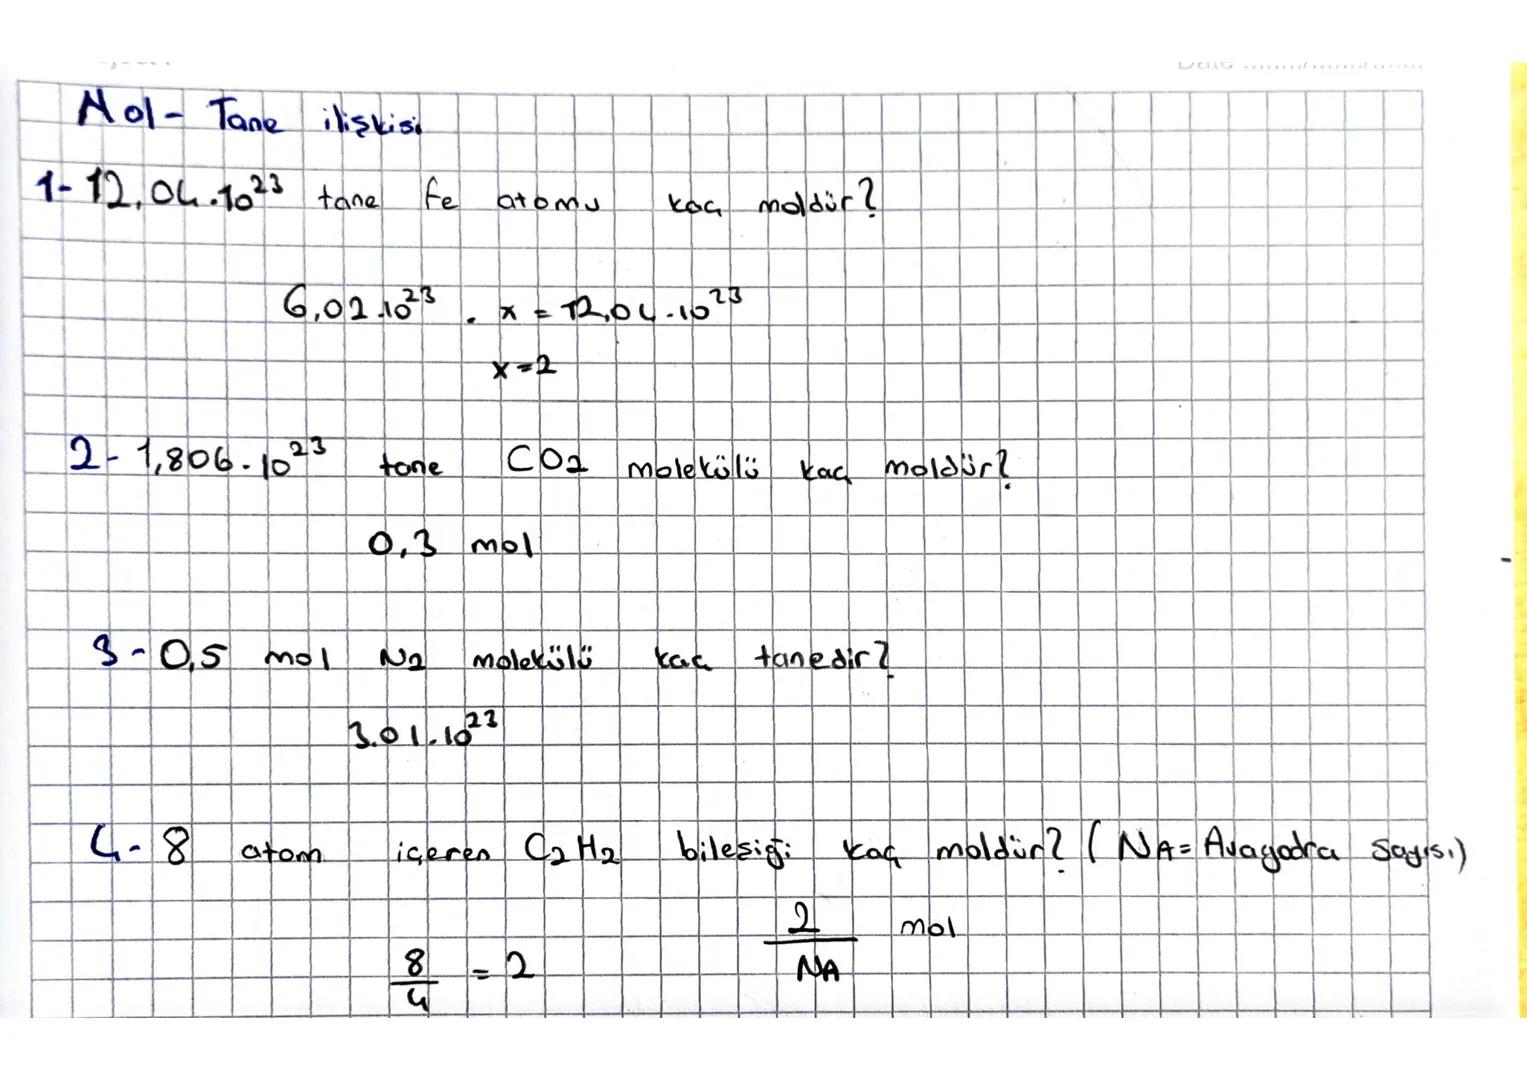 Date
Mol - Tane ilişkisi
1- 12,04.10²³ tane Fe atomu kaç moldür?
6,02.10²³ . x = 12,04.10²³
x = 2
2- 1,806.10²³ tane CO₂ molekülü kaç moldür?
0,3 mol
3- 0,5 mol N₂ molekülü kaç tanedir?
3.01.10²³
4- 8 atom içeren C₂H₂ bileşiği kaç moldür? (NA = Avagadra Sayısı)
8/4 = 2
2/NA mol